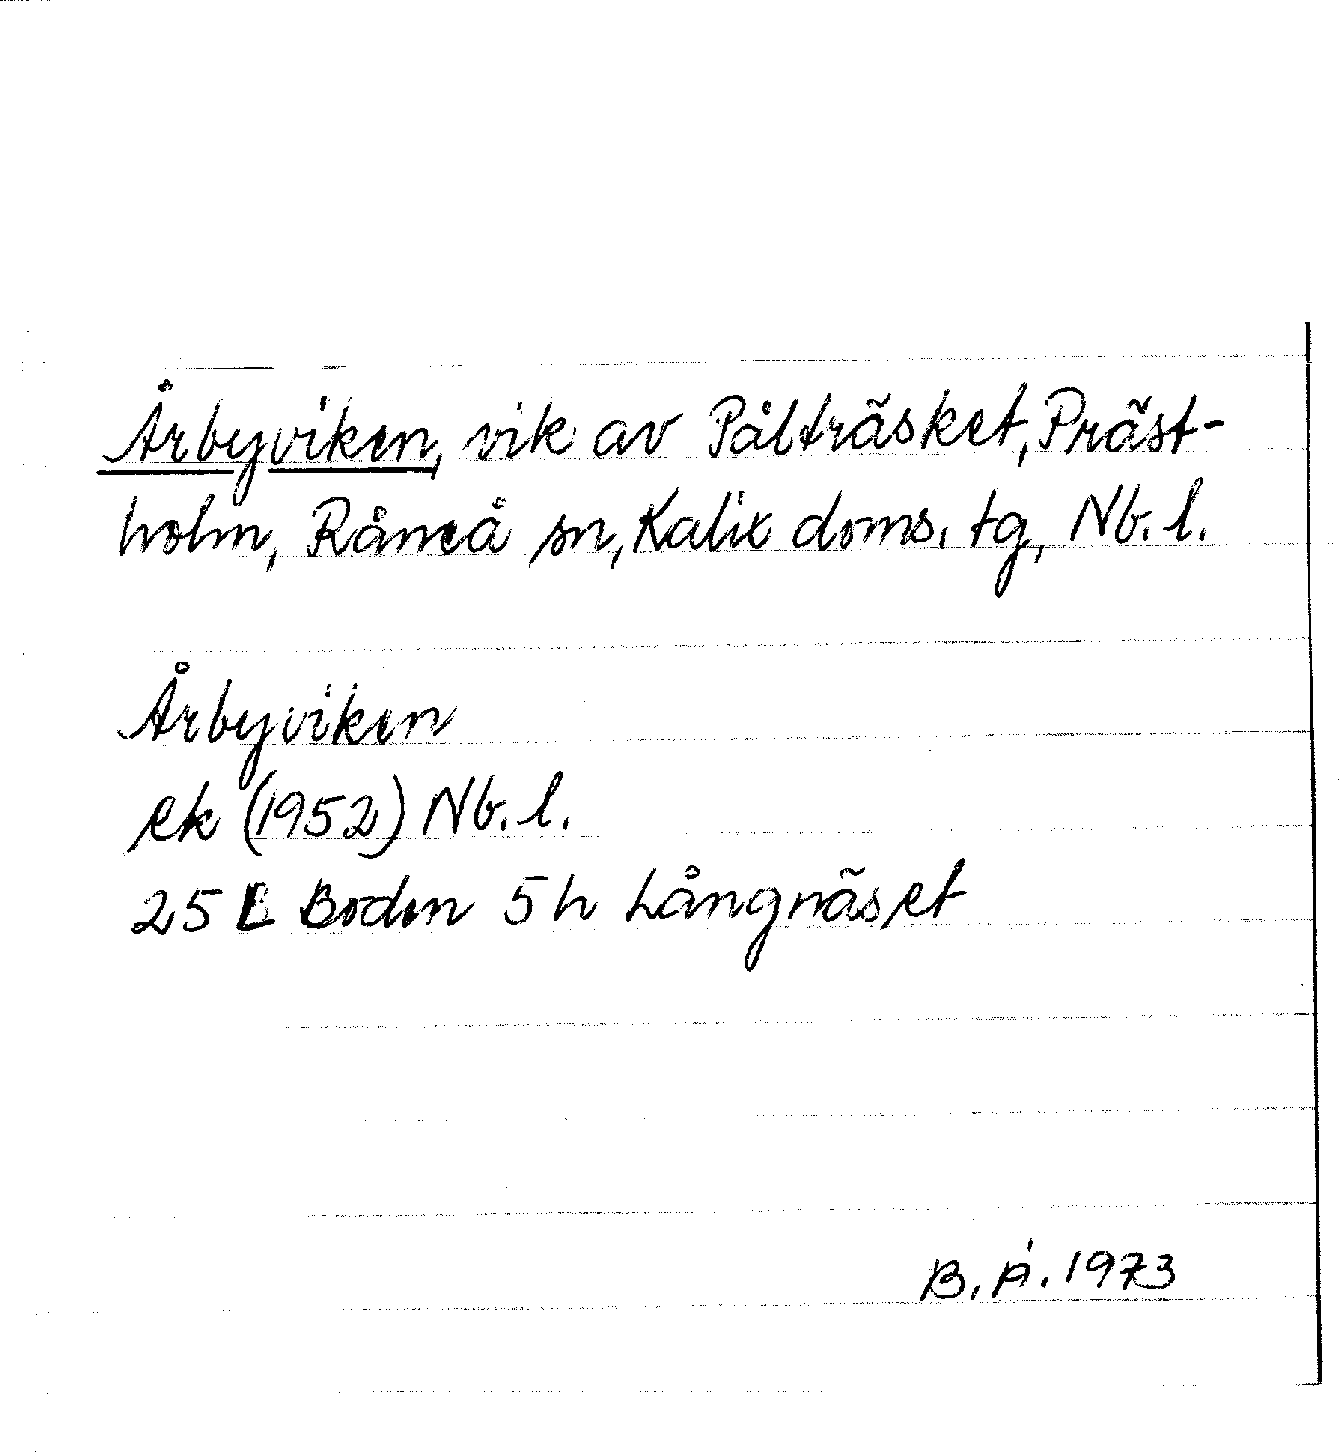 Årbyviken, vik av Pålträsket, Präst-
holm, Råneå sn, Kalix doms. tg, Nb. l.
Årbyviken
ek (1952) Nb. l.
25 L Boden 5h Långnäset
B. Å. 1973